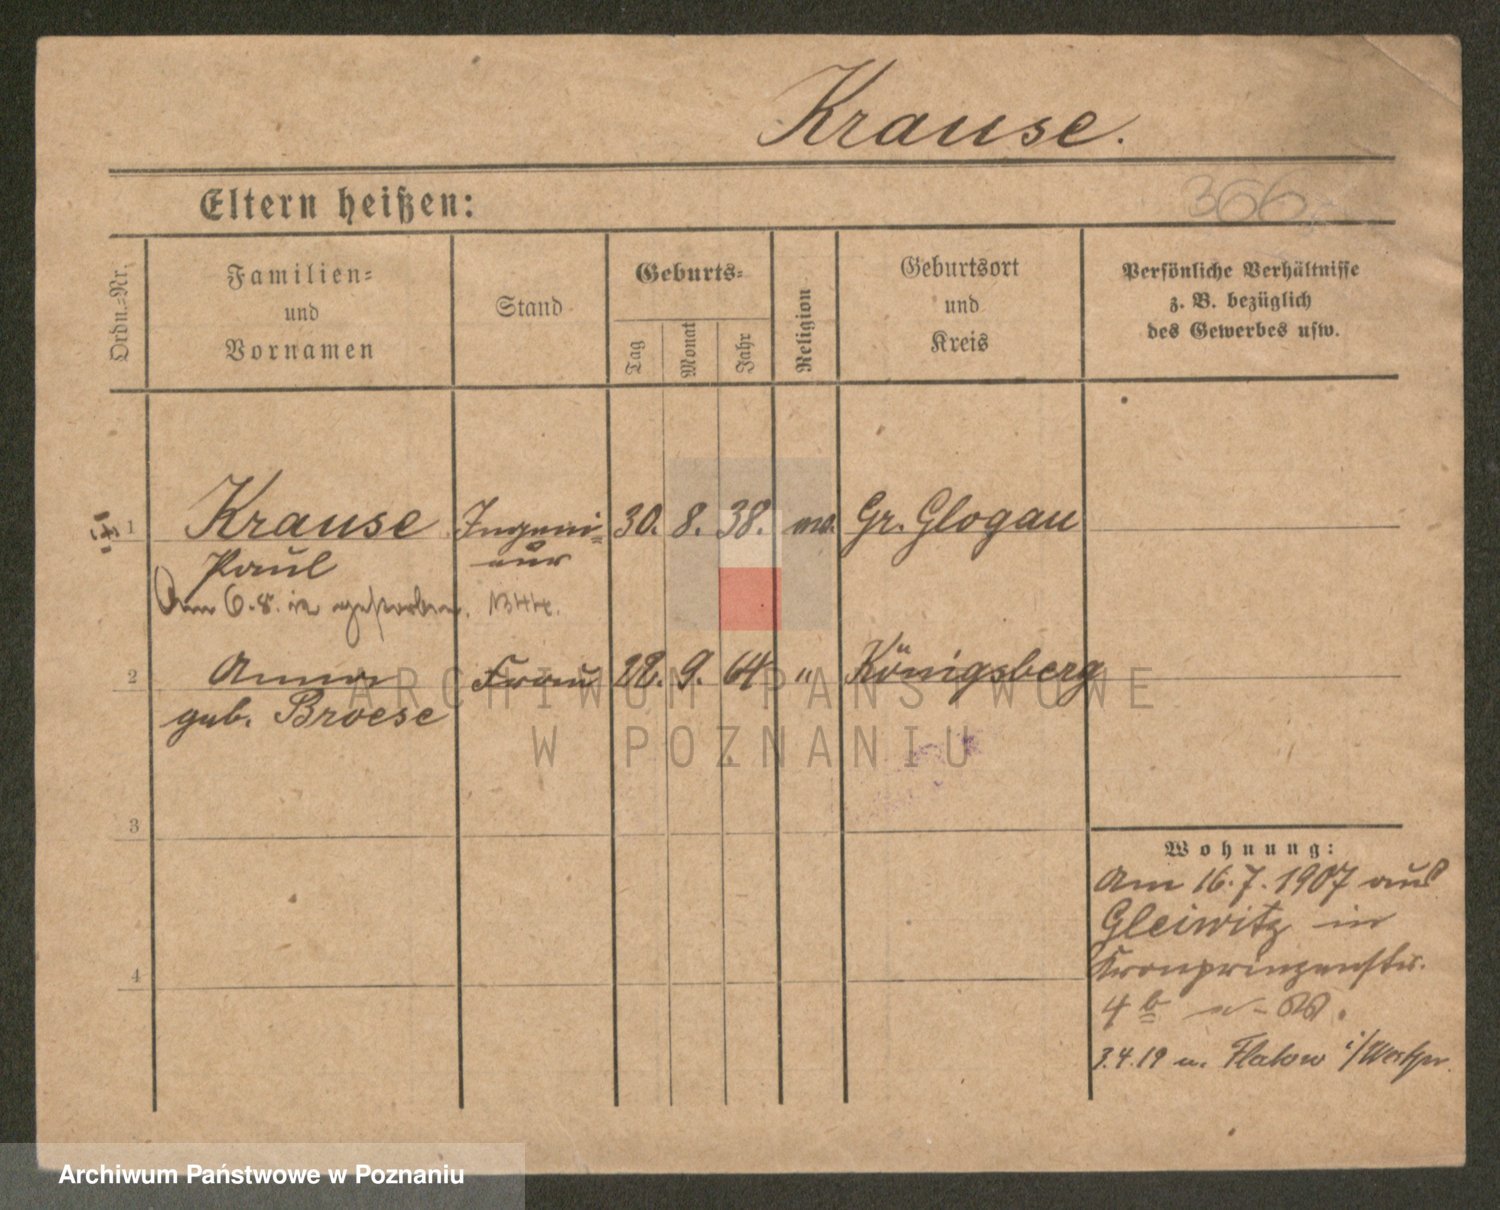 Krause.
Eltern heißen:
366
Ordn.-Nr.
Familien-
und
Vornamen
Stand
Geburts-
Tag
Monat
Jahr
Religion
Geburtsort
und
Kreis
Persönliche Verhältnisse
z. B. bezüglich
des Gewerbes usw.
1 Krause Ingeni- 30. 8. 38. Gr. Glogau
Paul eur
Am 6.8. gestorben.
2 Anna Frau 22. 9. 64 " Königsberg
geb. Broese
ARCHIWUM PAŃSTWOWE
W POZNANIU
3
4
Wohnung:
Am 16.7.1907 aus
Gleiwitz in
Kronprinzenstr.
4 b
3.4.19 n. Flatow i/Westpr.
Archiwum Państwowe w Poznaniu